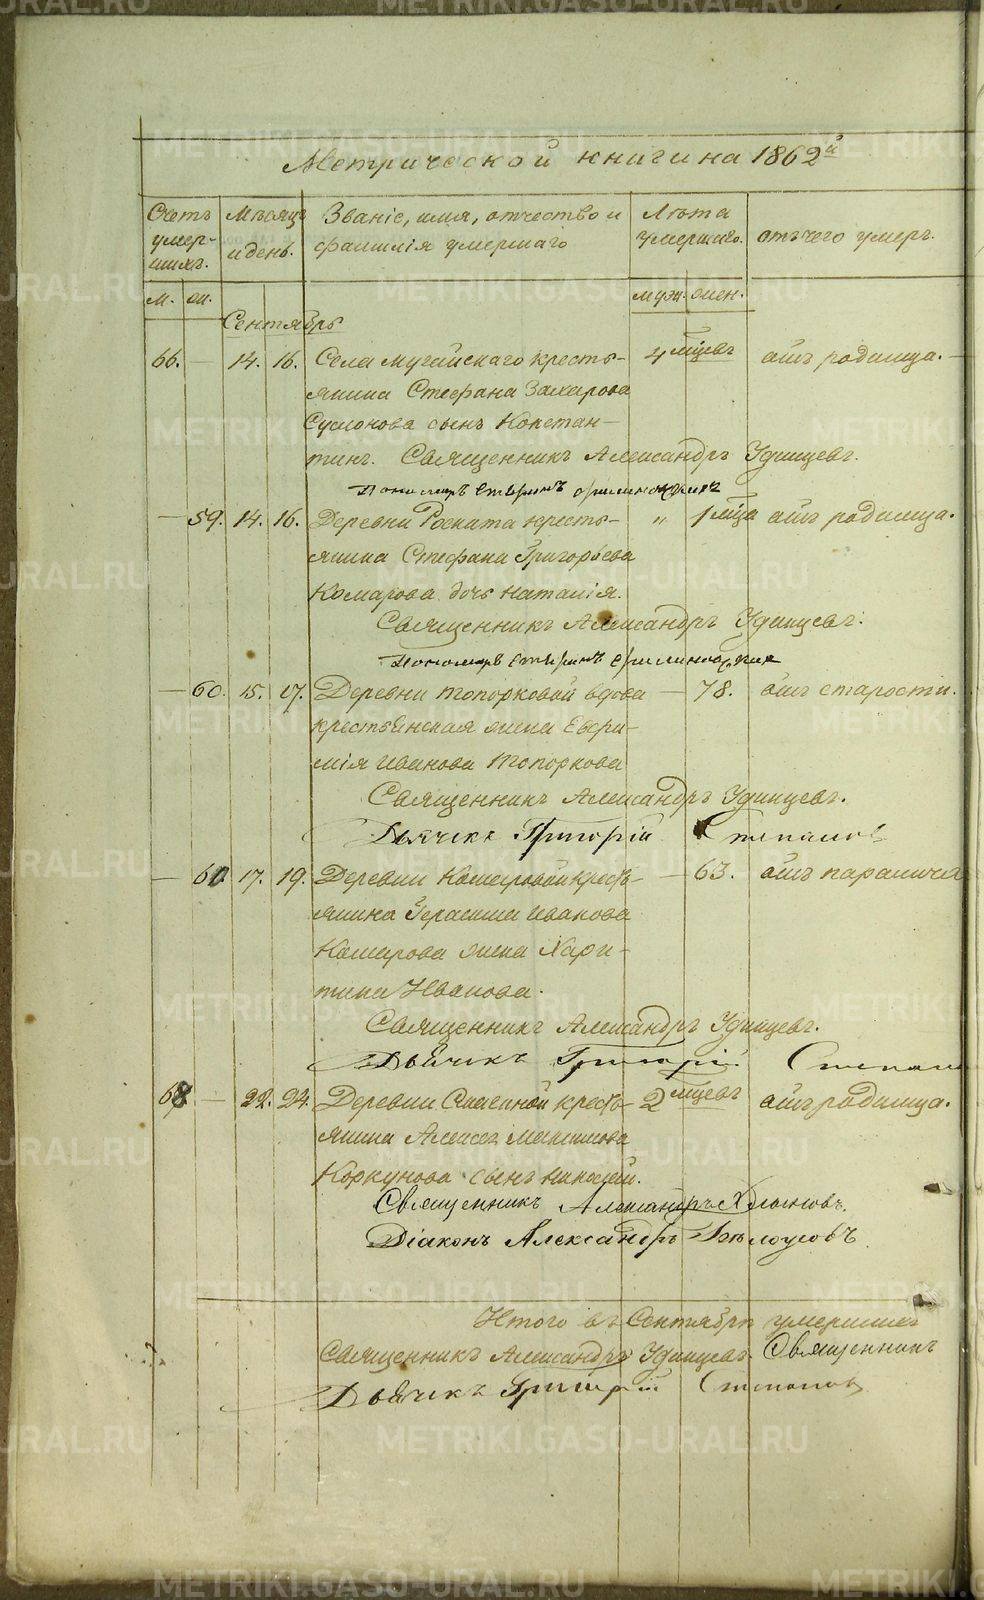 Метрической книги на 1862й
Счетъ умер-шихъ. Мѣсяцъ и день. Званіе, имя, отчество и фамилія умершаго Лѣта умершаго. отъ чего умеръ.
м. ж. муж. жен.
Сентябрь
66. — 14. 16. Села Мугайскаго кресть- 4 мцевъ отъ родимца. —
янина Стефана Захарова
Суслонова сынъ Констан-
тинъ. Священникъ Александръ Удинцевъ.
Пономарь
— 59. 14. 16. Деревни Роската кресть- „ 1 мца отъ родимца.
янина Стефана Григорьева
Комарова дочь Наталія.
Священникъ Александръ Удинцевъ.
Пономарь
— 60. 15. 17. Деревни Топорковой вдова — 78. отъ старости.
крестьянская жена Евфи-
мія Иванова Топоркова
Священникъ Александръ Удинцевъ.
Дьячекъ Григорій Степановъ
— 61. 17. 19. Деревни Комаровой кресть- — 63. отъ паралича
янина Герасима Иванова
Комарова жена Хари-
тина Иванова.
Священникъ Александръ Удинцевъ.
Дьячекъ Григорій Степано
67 — 22. 24. Деревни кресть- 2 мцевъ отъ родимца.
янина Алексея
Коркунова сынъ Николай.
Священникъ Александръ Хлыновъ.
Діаконъ Александръ Бѣлоусовъ
Итого въ Сентябрѣ умершихъ
Священникъ Александръ Удинцевъ. Священникъ
Дьячекъ Григорій Степановъ
METRIKI.GASO-URAL.RU